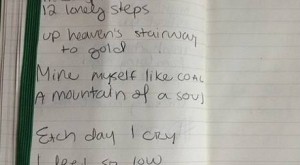 12 lonely steps
up heaven's stairway
to gold
Mine myself like COAL
A mountain of a soul
Each day I cry
I feel so low